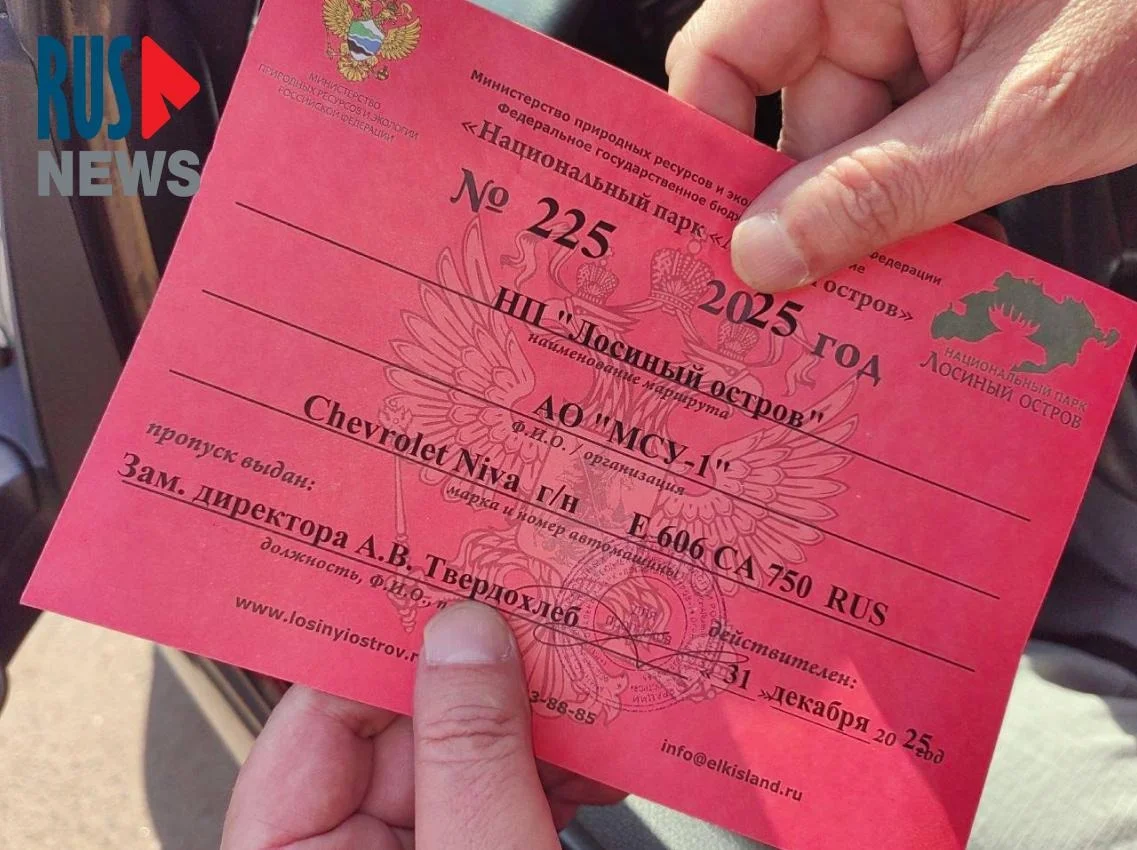 RUS
NEWS
МИНИСТЕРСТВО
ПРИРОДНЫХ РЕСУРСОВ И ЭКОЛОГИИ
РОССИЙСКОЙ ФЕДЕРАЦИИ
Министерство природных ресурсов и федерации
Федеральное государственное
«Национальный парк остров»
№ 225 2025 год
НП "Лосиный остров"
наименование маршрута
АО "МСУ-1"
Ф.И.О. / организация
Chevrolet Niva г/н Е 606 СА 750 RUS
марка и номер автомашины
пропуск выдан:
Зам. директора А.В. Твердохлеб
должность, Ф.И.О.,
действителен:
« 31 » декабря 20 25 год
www.losinyiostrov.
3-88-85
info@elkisland.ru
НАЦИОНАЛЬНЫЙ ПАРК
ЛОСИНЫЙ ОСТРОВ